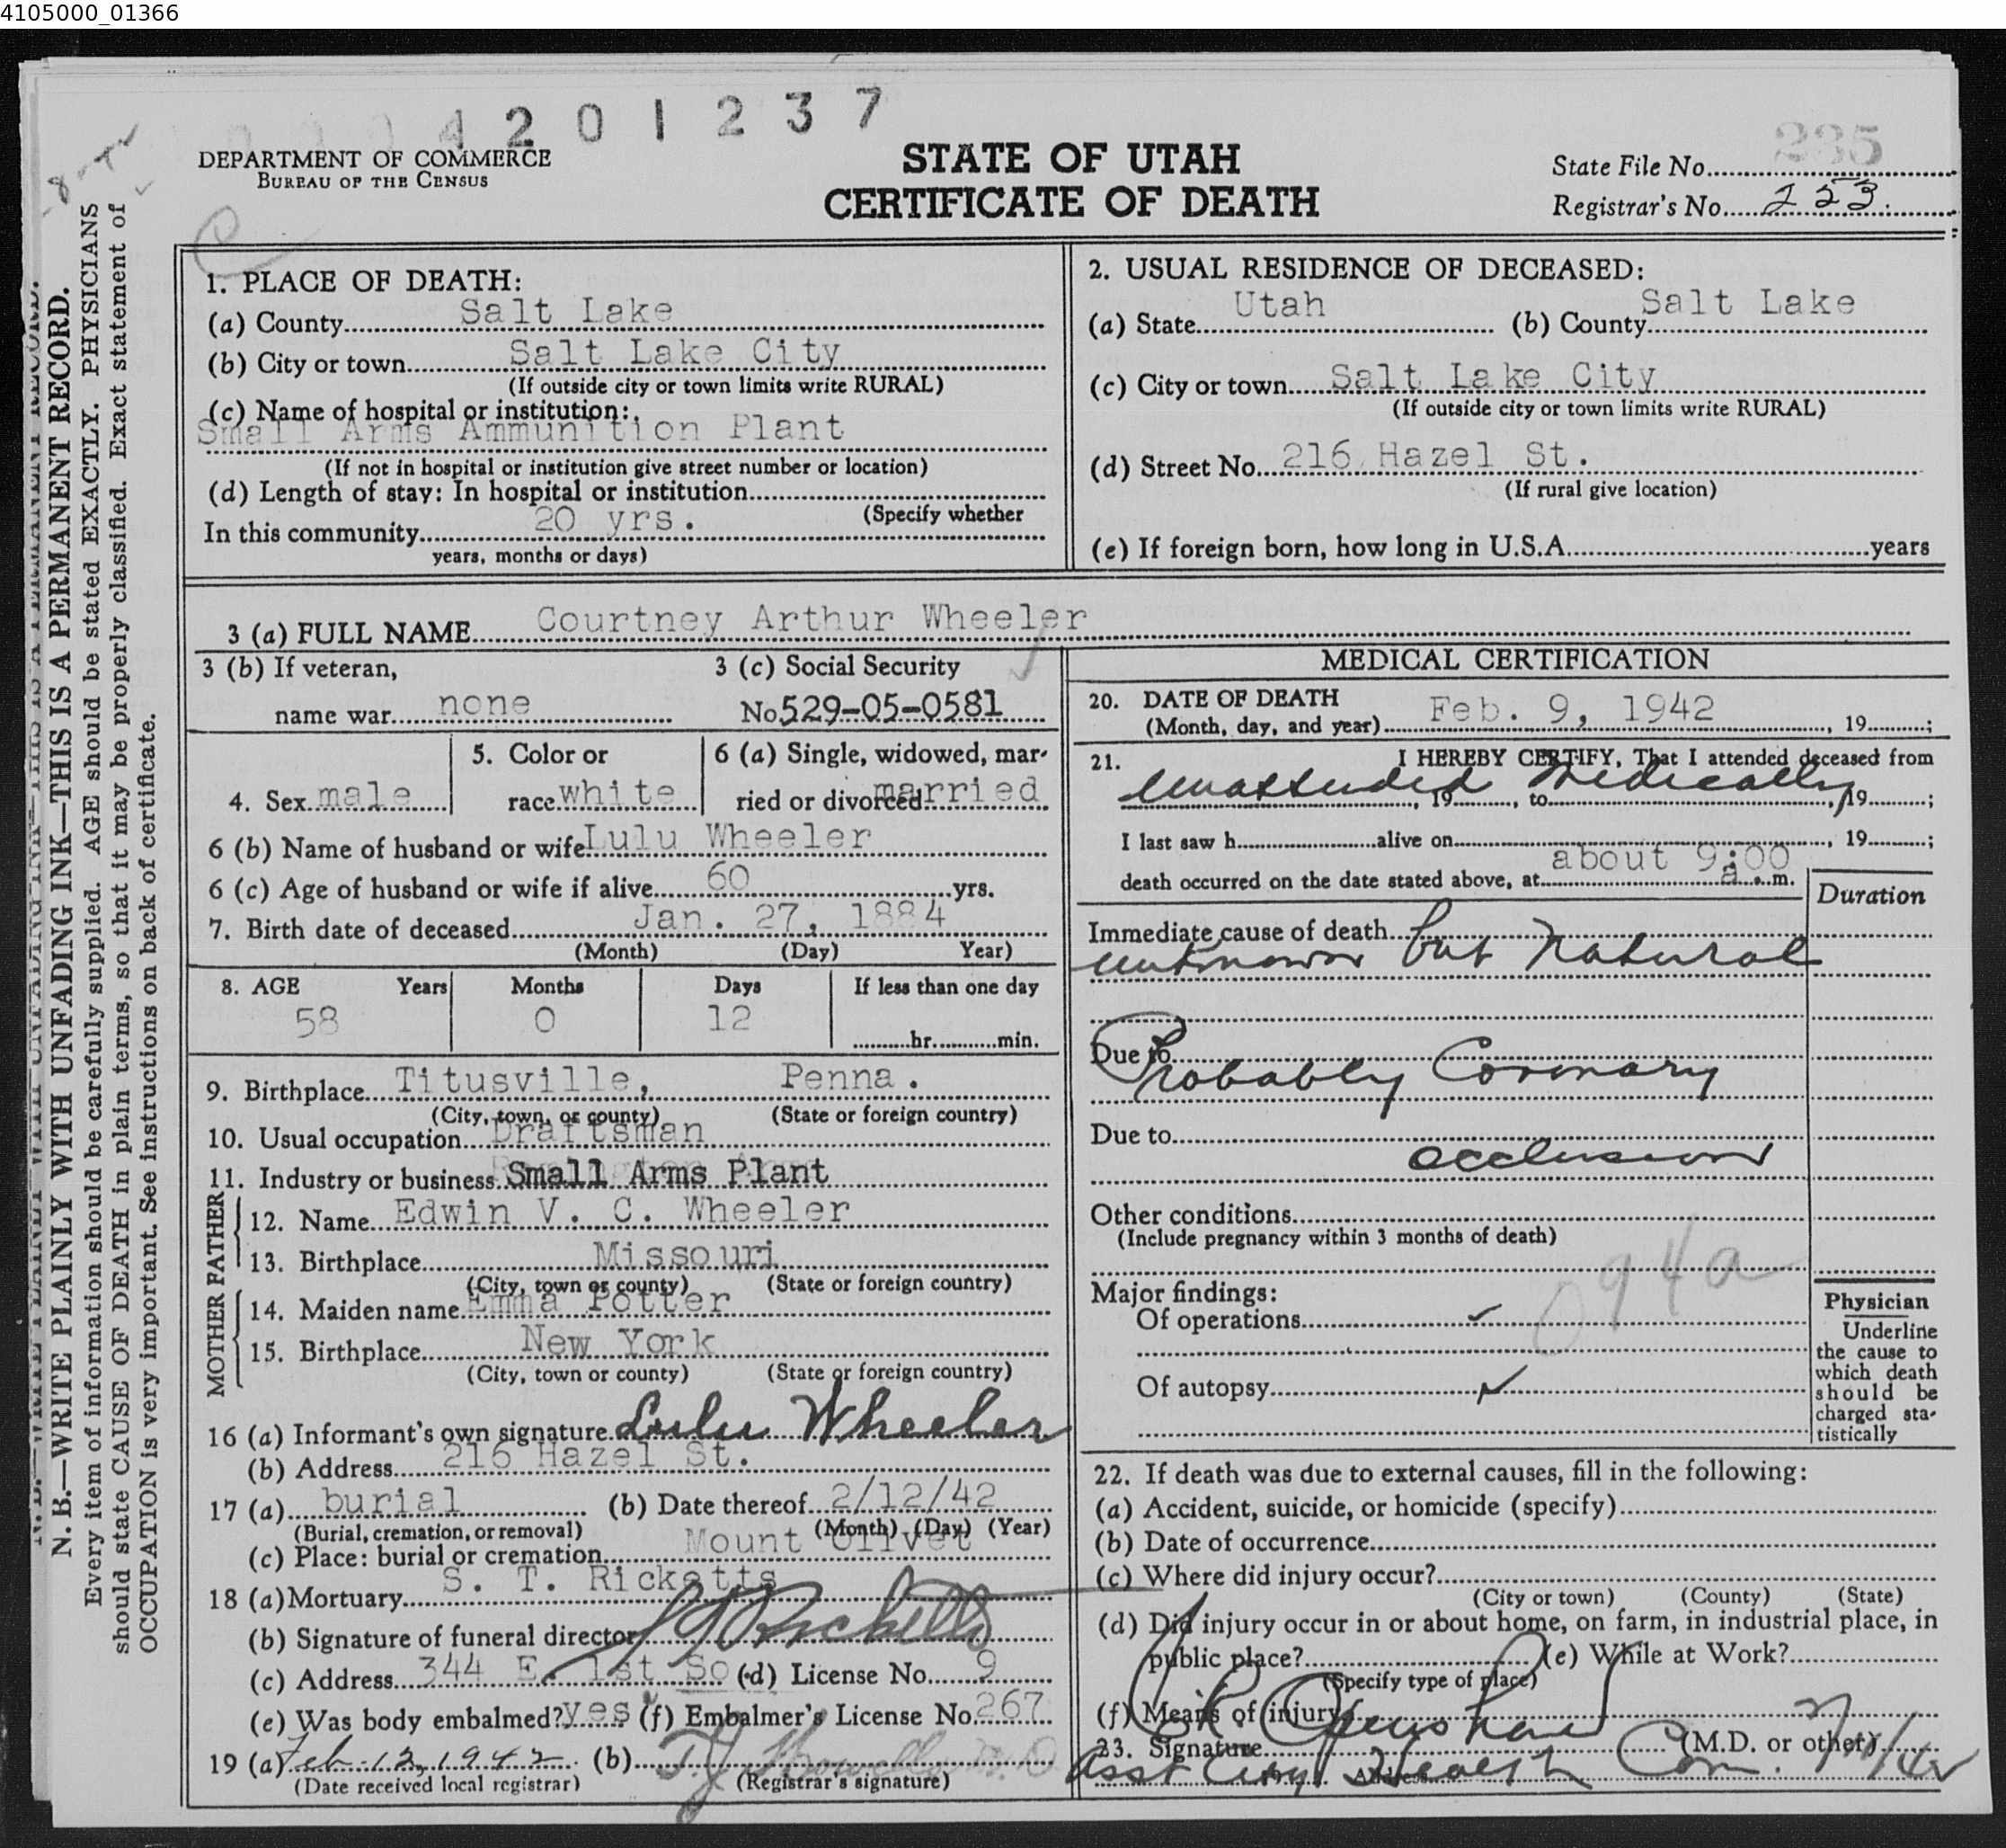 4105000_01366
4 2 0 1 2 3 7
DEPARTMENT OF COMMERCE
BUREAU OF THE CENSUS
STATE OF UTAH
CERTIFICATE OF DEATH
State File No. 235
Registrar's No. 253
N. B.—WRITE PLAINLY WITH UNFADING INK—THIS IS A PERMANENT RECORD.
Every item of information should be carefully supplied. AGE should be stated EXACTLY. PHYSICIANS
should state CAUSE OF DEATH in plain terms, so that it may be properly classified. Exact statement of
OCCUPATION is very important. See instructions on back of certificate.
1. PLACE OF DEATH:
(a) County Salt Lake
(b) City or town Salt Lake City
(If outside city or town limits write RURAL)
(c) Name of hospital or institution:
Small Arms Ammunition Plant
(If not in hospital or institution give street number or location)
(d) Length of stay: In hospital or institution
(Specify whether
In this community 20 yrs.
years, months or days)
2. USUAL RESIDENCE OF DECEASED:
(a) State Utah (b) County Salt Lake
(c) City or town Salt Lake City
(If outside city or town limits write RURAL)
(d) Street No. 216 Hazel St.
(If rural give location)
(e) If foreign born, how long in U.S.A. years
3 (a) FULL NAME Courtney Arthur Wheeler
3 (b) If veteran, 3 (c) Social Security
name war none No 529-05-0581
4. Sex male 5. Color or race white 6 (a) Single, widowed, married or divorced married
6 (b) Name of husband or wife Lulu Wheeler
6 (c) Age of husband or wife if alive 60 yrs.
7. Birth date of deceased Jan. 27, 1884
(Month) (Day) Year)
8. AGE Years Months Days If less than one day
58 0 12 hr. min.
9. Birthplace Titusville, Penna.
(City, town, or county) (State or foreign country)
10. Usual occupation Draftsman
11. Industry or business Small Arms Plant
FATHER
12. Name Edwin V. C. Wheeler
13. Birthplace Missouri
(City, town or county) (State or foreign country)
MOTHER
14. Maiden name Emma Potter
15. Birthplace New York
(City, town or county) (State or foreign country)
16 (a) Informant's own signature Lulu Wheeler
(b) Address 216 Hazel St.
17 (a) burial (b) Date thereof 2/12/42
(Burial, cremation, or removal) (Month) (Day) (Year)
(c) Place: burial or cremation Mount Olivet
18 (a) Mortuary S. T. Ricketts
(b) Signature of funeral director S T Ricketts
(c) Address 344 E. 1st So (d) License No. 9
(e) Was body embalmed? yes (f) Embalmer's License No. 267
19 (a) Feb. 12, 1942 (b)
(Date received local registrar) (Registrar's signature)
MEDICAL CERTIFICATION
20. DATE OF DEATH
(Month, day, and year) Feb. 9, 1942, 19 ;
21. I HEREBY CERTIFY, That I attended deceased from
Unattended, 19 , to Medically, 19 ;
I last saw h alive on , 19 ;
death occurred on the date stated above, at about 9:00 a.m.
Duration
Immediate cause of death
unknown but natural
Due to
Probably Coronary
Due to
occlusion
Other conditions
(Include pregnancy within 3 months of death)
094a
Major findings:
Of operations
Of autopsy
Physician
Underline
the cause to
which death
should be
charged sta-
tistically
22. If death was due to external causes, fill in the following:
(a) Accident, suicide, or homicide (specify)
(b) Date of occurrence
(c) Where did injury occur?
(City or town) (County) (State)
(d) Did injury occur in or about home, on farm, in industrial place, in
public place? (e) While at Work?
(Specify type of place)
(f) Means of injury
23. Signature (M.D. or other)
Asst City Health Com.